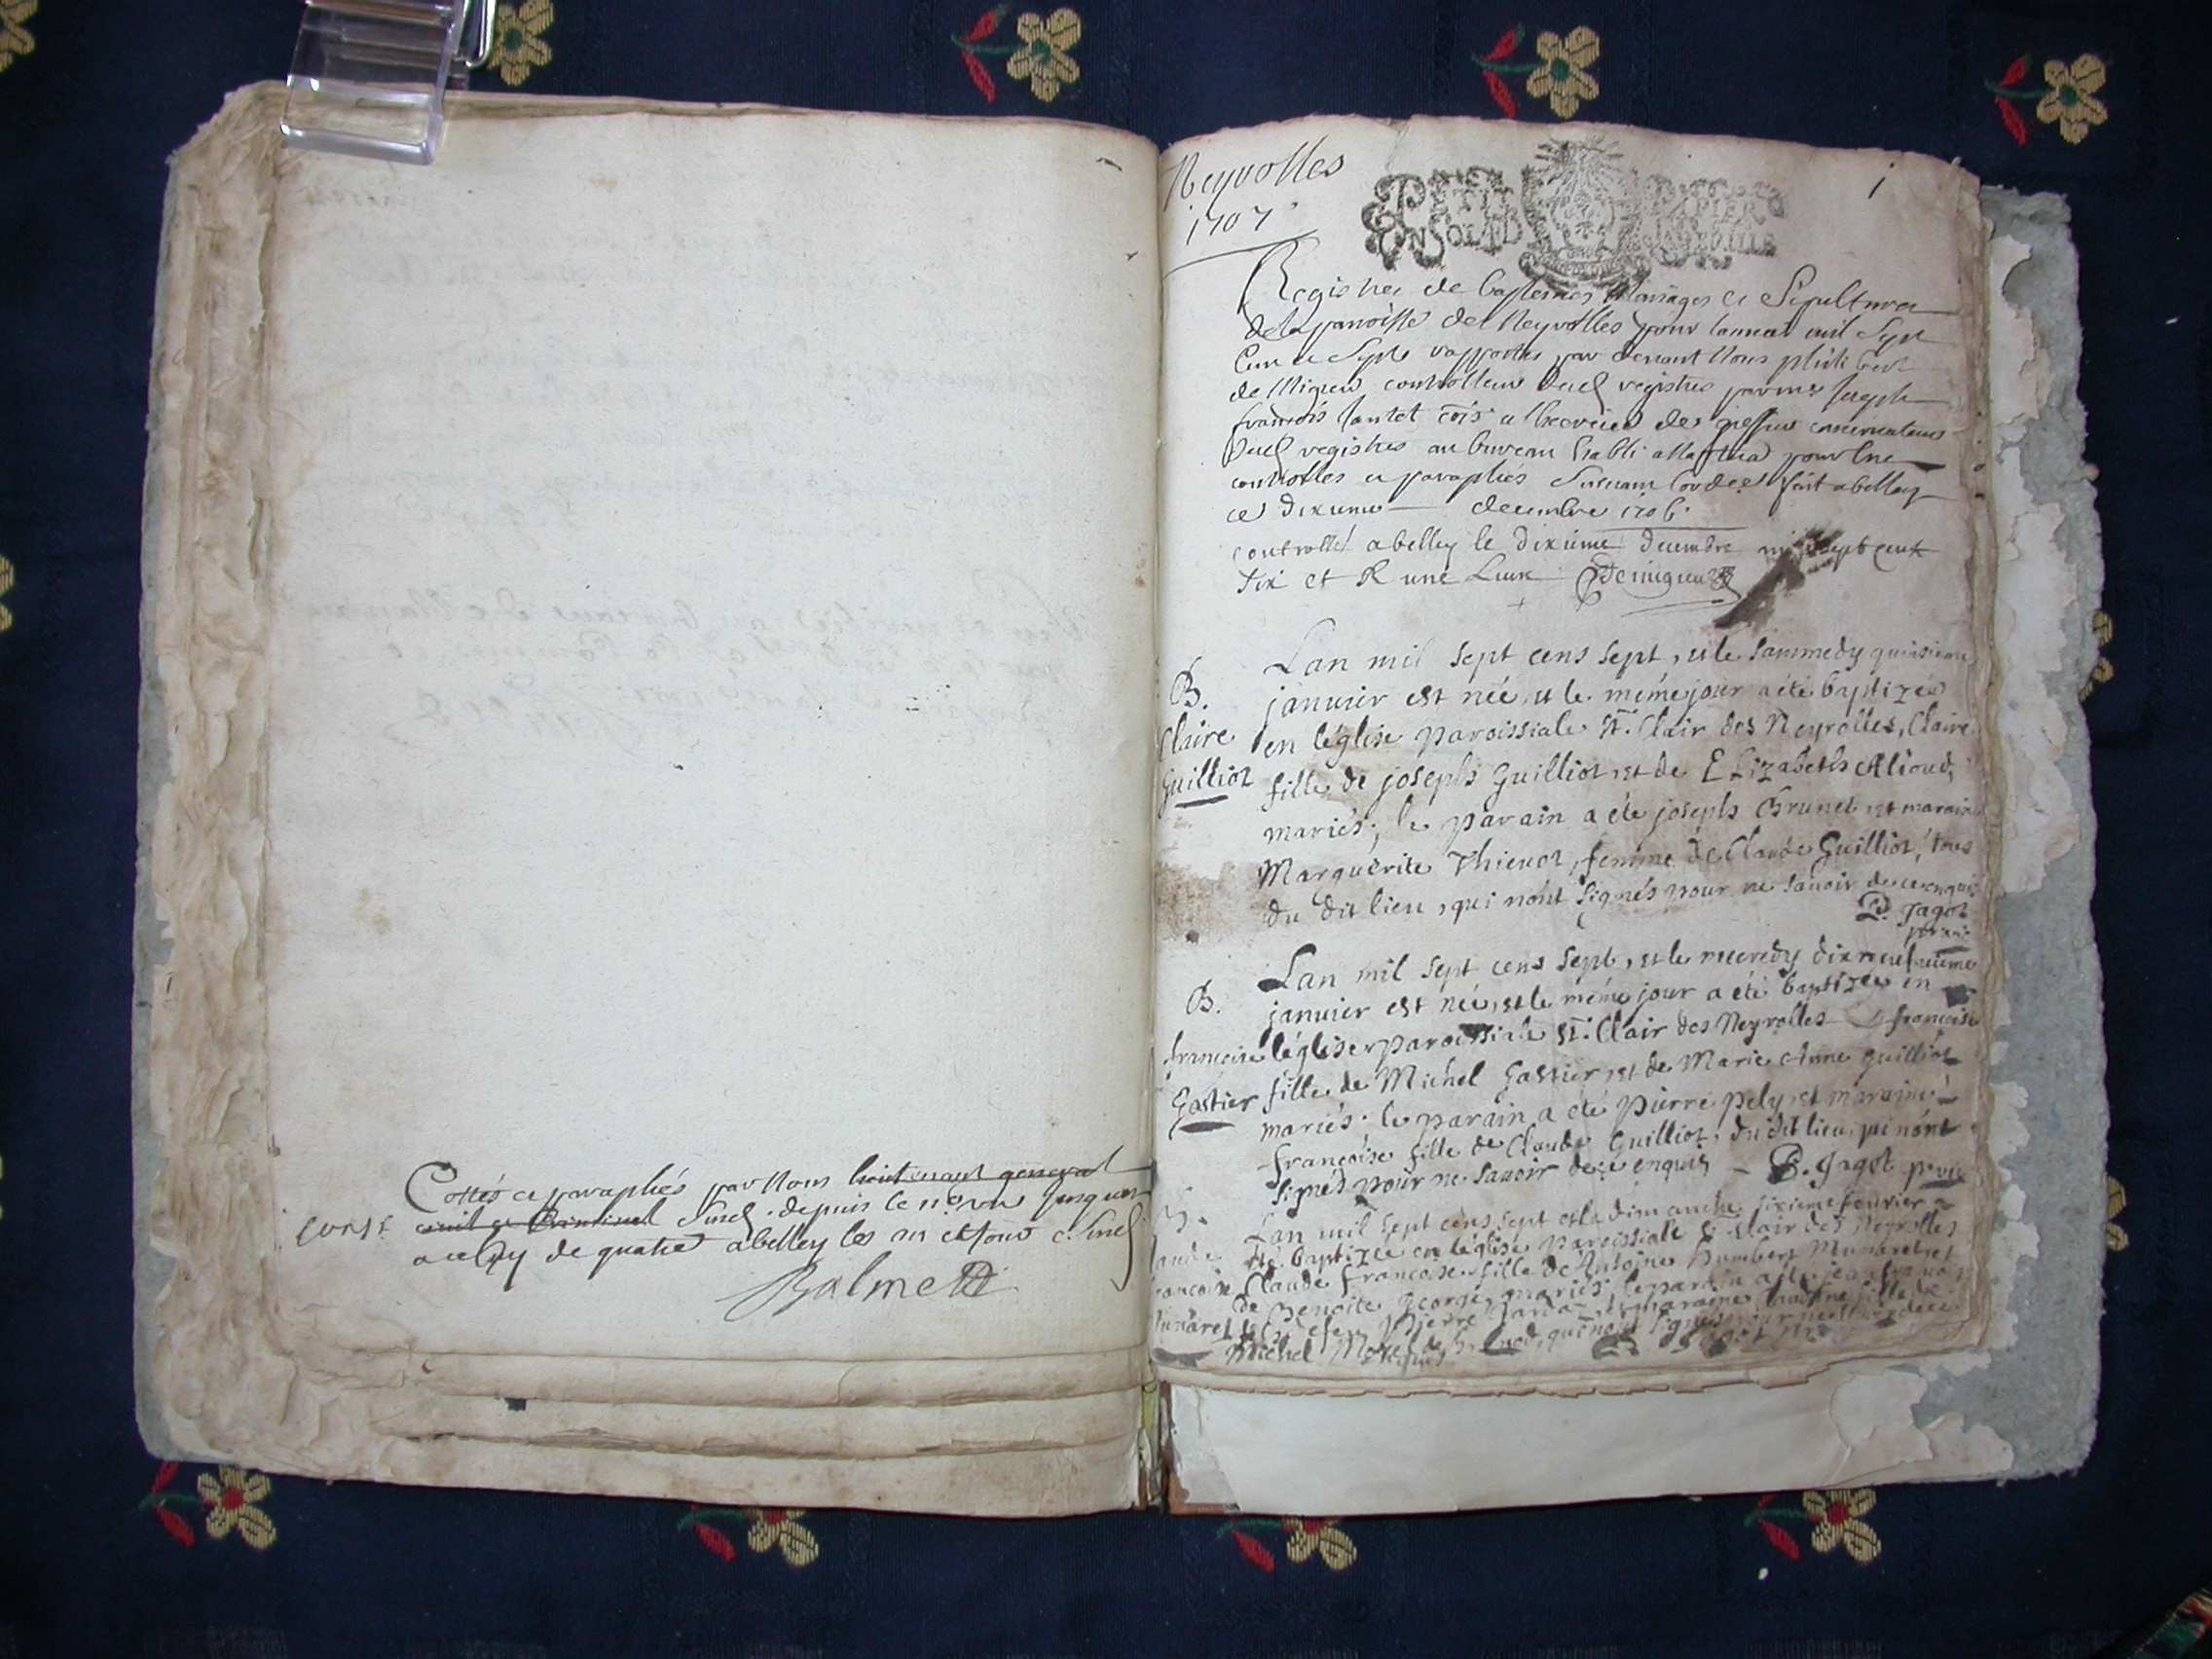 Cottés et paraphés par Nous lieutenant general
civil et criminel depuis le n.º un jusques
a celuy de quatre a belley les an et jour
Balme
Neyrolles
1707
PETIT PAPIER
UN SOL LA
1
Registres de Baptesmes Mariages et Sepultures
de la parroisse de Neyrolles pour l'année mil sept
cent et sept rapportes par devant Nous philibert
de Migieu controlleur registres par me Joseph
françois Jantet des greffier conservateur
registres au bureau Establi a Nantua pour Etre
controlles et paraphés suivant fait a belley
ce dixieme decembre 1706.
controllé a belley le dixieme decembre mil sept cent
six et R une Livre Demigieu
B.
Claire
Guilliot
Lan mil sept cens sept, et le sammedy quinsieme
januier est née, et le méme jour a été baptizée
en léglise paroissiale St. Clair des Neyrolles, Claire
fille de joseph Guilliot, et de Elizabeth Alioud,
mariés; le parain a été joseph Brunet et maraine
Marguerite Thienot, femme de Claude Guilliot, tous
du dit lieu, qui nont signés pour ne sauoir de ce enquis
Jagot
B.
françoise
Gastier
Lan mil sept cens sept, et le mecredy dixneufuieme
januier est née, et le méme jour a été baptizée en
léglise paroissiale St. Clair des Neyrolles françoise
fille de Michel Gastier, et de Marie Anne Guilliot
mariés. le parain a été pierre pely et maraine
françoise fille de Claude Guilliot, du dit lieu, qui nont
signés pour ne sauoir de ce enquis B. Jagot
B.
Lan mil sept cens sept et le dimanche sixieme feurier a
été baptizée en léglise paroissiale St. Clair des Neyrolles
Claude françoise fille de Antoine Humbert Munaret et
de Benoite George mariés, le parain a été jean françois
Pierre et maraine fille de
Michel Morel